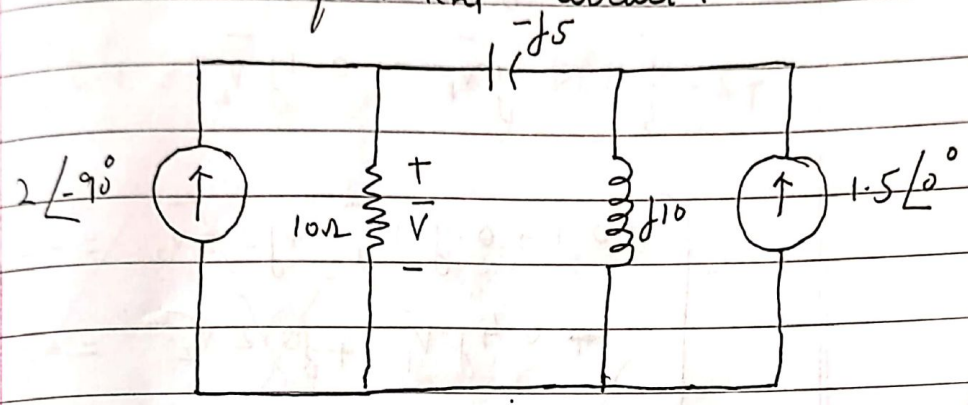 -j5
2∠-90°
10Ω
+
V̅
-
j10
1.5∠0°